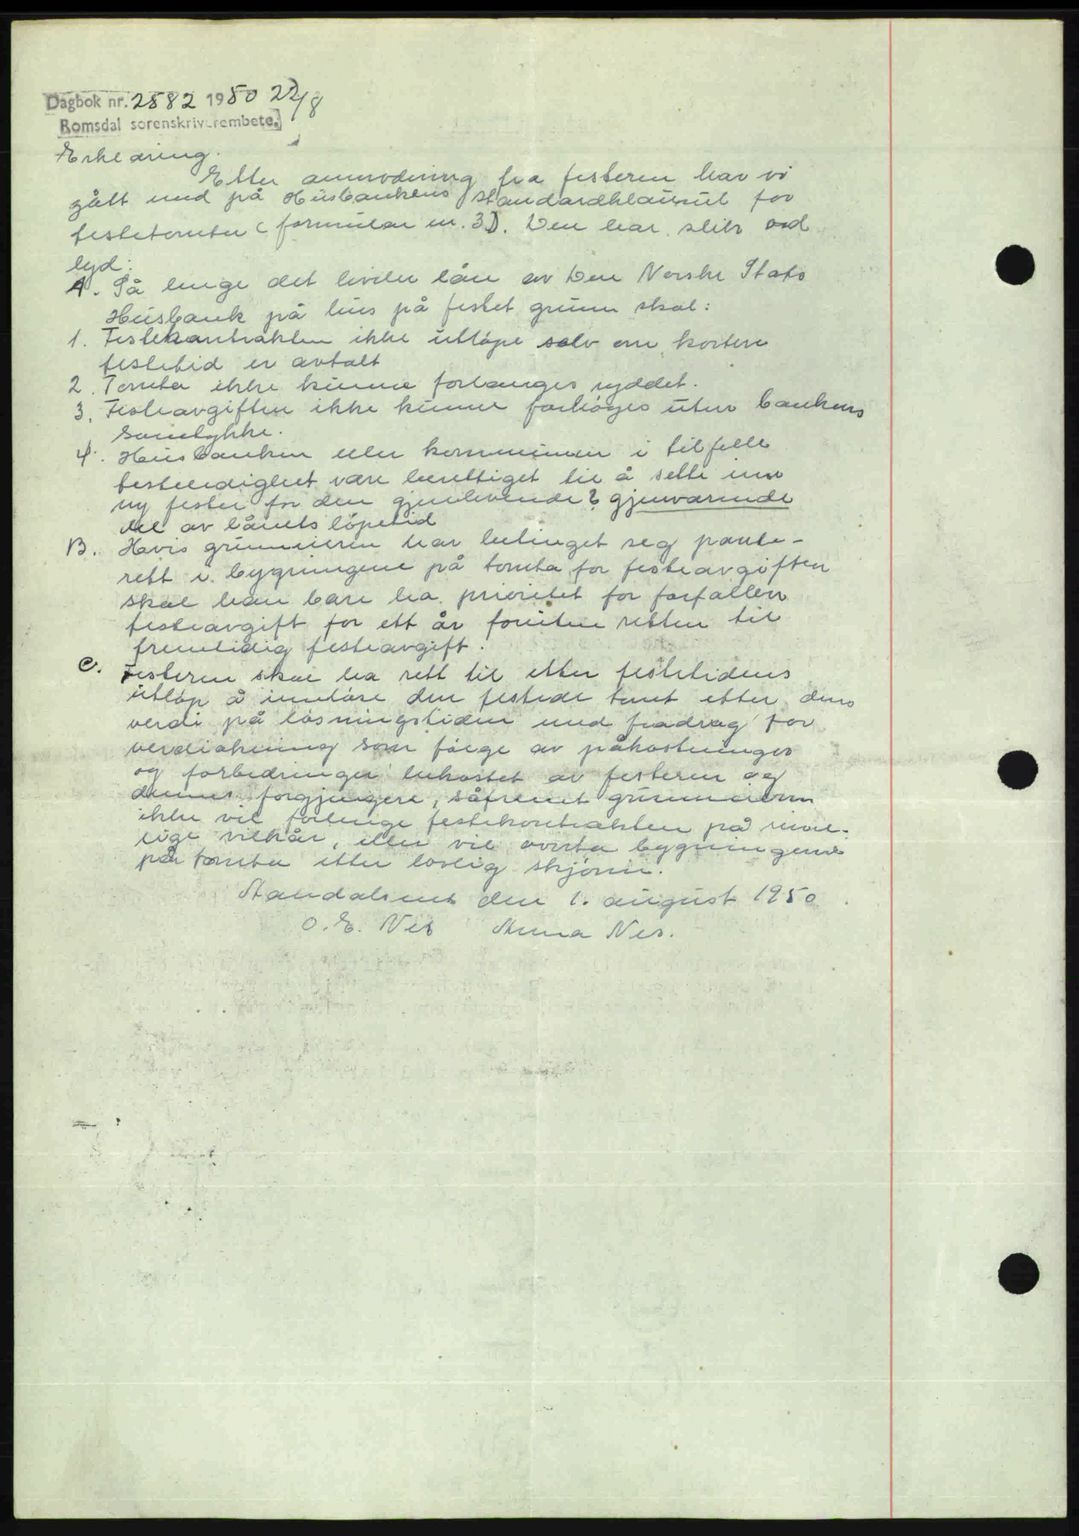 Dagbok nr. 2582 1950 22/8
Romsdal sorenskriverembete.
Erklæring.
Etter anmodning fra festeren har vi
gått med på Husbankens standardklausul for
festetomter (formular nr. 3D). Den har slik ord
lyd:
A. Så lenge det hviler lån av Den Norske Stats
Husbank på hus på festet grunn skal:
1. Festekontrakten ikke utløpe selv om kortere
festetid er avtalt
2. Tomta ikke kunne forlanges ryddet.
3. Festeavgiften ikke kunne forhøges uten bankens
samtykke.
4. Husbanken eller kommunen i tilfelle
festeledighet være berettiget til å sette inn
ny fester for den gjenlevende ? gjenværende
del av lånets løpetid
B. Hvis grunneieren har betinget seg pante-
rett i bygningene på tomta for festeavgiften
skal han bare ha prioritet for forfallen
festeavgift for ett år foruten retten til
fremtidig festeavgift.
C. Festeren skal ha rett til etter festetidens
utløp å innløse den festede tomt etter dens
verdi på løsningstiden med fradrag for
verdiøkning som følge av påkostninger
og forbedringer bekostet av festeren og
dennes forgjengere, såfremt grunneieren
ikke vil forlenge festekontrakten på rime-
lige vilkår, eller vil overta bygningene
på tomta etter lovlig skjønn.
Åndalsnes den 1. august 1950.
O. E. Nes Anna Nes.